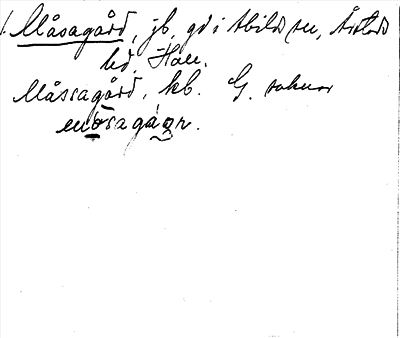 Måsagård, jb, gd i Abild sn, Årstads
hd, Hall.
Måssagård, kb. G. saknar
mosagáọr.